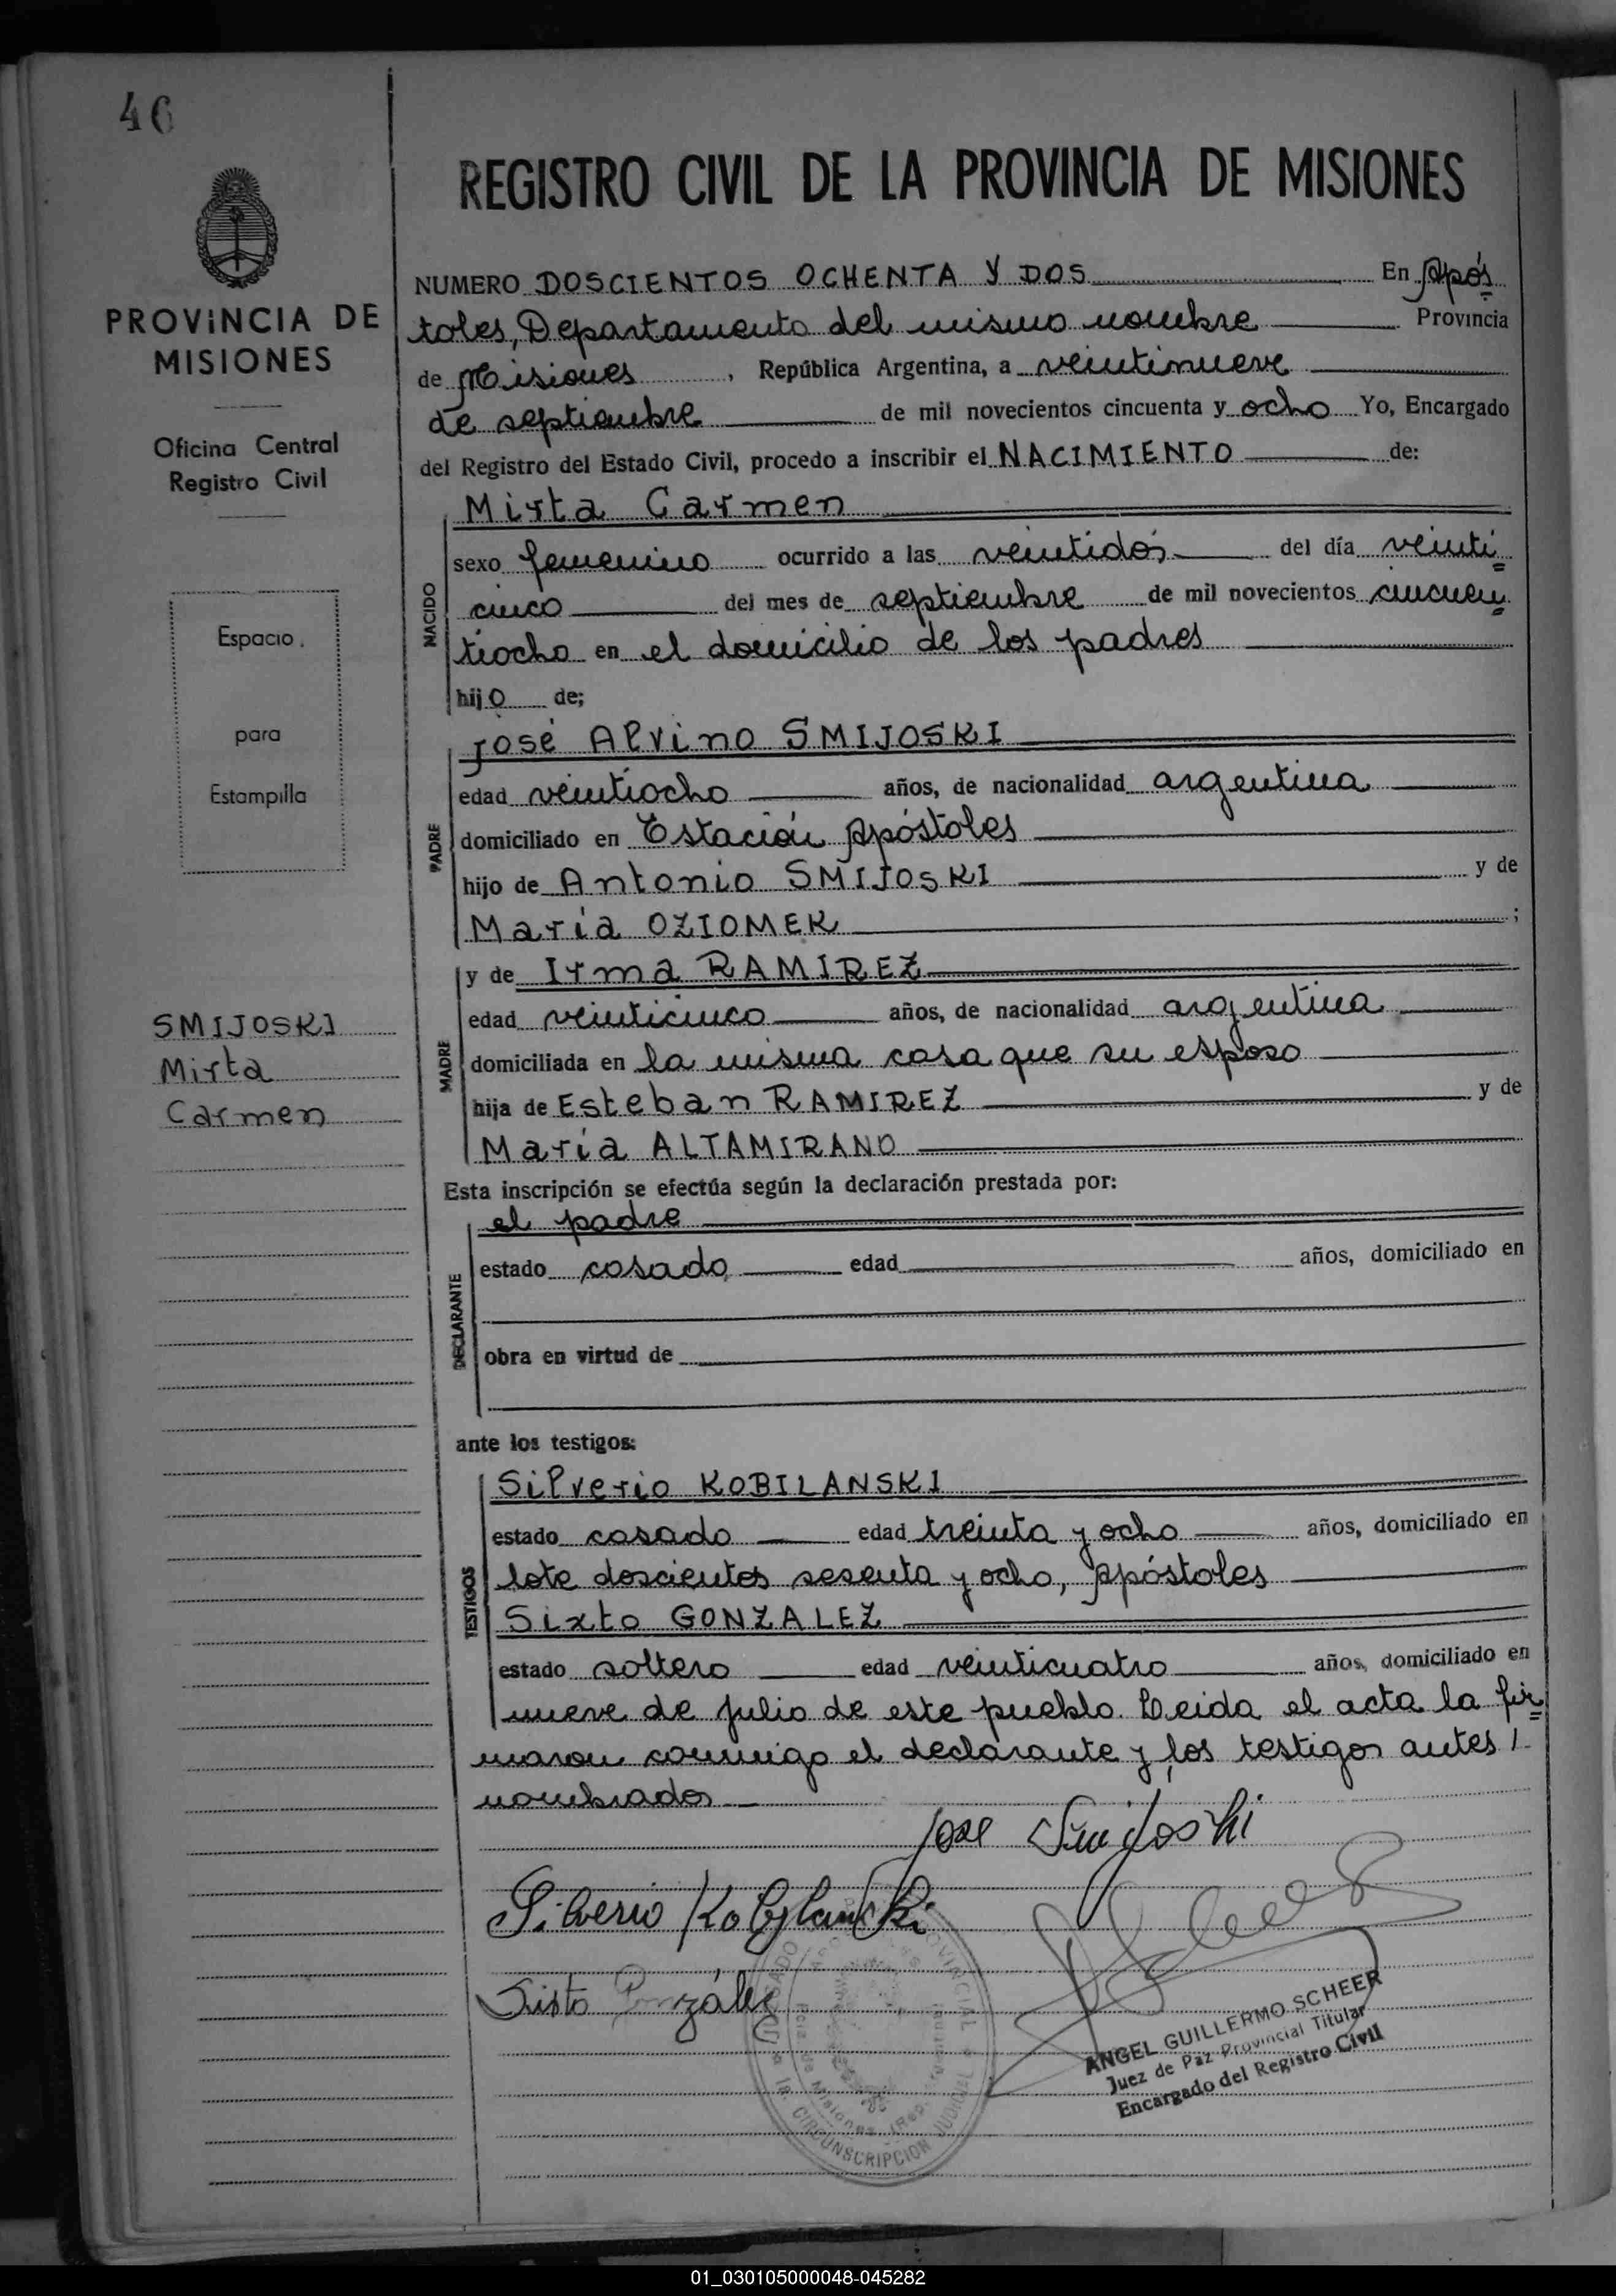 46
PROVINCIA DE
MISIONES
Oficina Central
Registro Civil
Espacio
para
Estampilla
SMIJOSKI
Mirta
Carmen
REGISTRO CIVIL DE LA PROVINCIA DE MISIONES
NUMERO DOSCIENTOS OCHENTA Y DOS En Após
toles, Departamento del mismo nombre Provincia
de Misiones, República Argentina, a veintinueve
de septiembre de mil novecientos cincuenta y ocho Yo, Encargado
del Registro del Estado Civil, procedo a inscribir el NACIMIENTO de:
Mirta Carmen
NACIDO
sexo femenino ocurrido a las veintidós del día veinti
cinco del mes de septiembre de mil novecientos cincuen
tiocho en el domicilio de los padres
hijo de;
José Alvino SMIJOSKI
PADRE
edad veintiocho años, de nacionalidad argentina
domiciliado en Estación Apóstoles
hijo de Antonio SMIJOSKI y de
María OZIOMEK ;
y de Irma RAMIREZ
MADRE
edad veinticinco años, de nacionalidad argentina
domiciliada en la misma casa que su esposo
hija de Esteban RAMIREZ y de
María ALTAMIRANO
Esta inscripción se efectúa según la declaración prestada por:
el padre
DECLARANTE
estado casado edad años, domiciliado en
obra en virtud de
ante los testigos:
Silverio KOBILANSKI
TESTIGOS
estado casado edad treinta y ocho años, domiciliado en
lote doscientos sesenta y ocho, Apóstoles
Sixto GONZALEZ
estado soltero edad veinticuatro años, domiciliado en
nueve de julio de este pueblo. Leida el acta la fir
maron conmigo el declarante y los testigos antes
nombrados
Jose Smijoski
Silverio Kobylanski
Sisto González
ANGEL GUILLERMO SCHEER
Juez de Paz Provincial Titular
Encargado del Registro Civil
CIRCUNSCRIPCION JUDICIAL
01_030105000048-045282